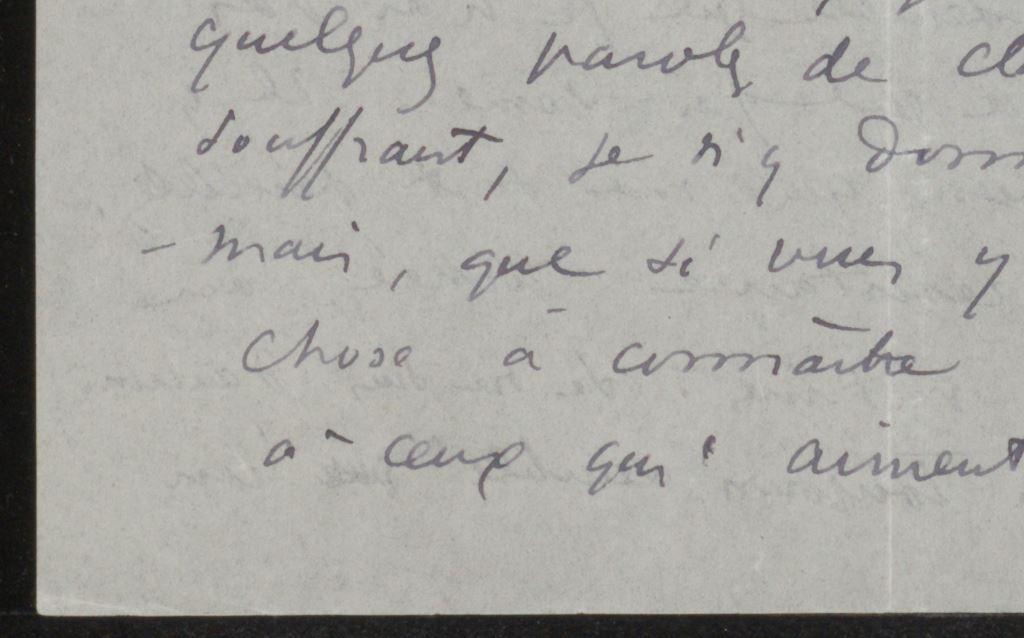 quelques paroles de
souffrant, je n'y
- mais, que si vous y
chose à connaître
à ceux qui aiment